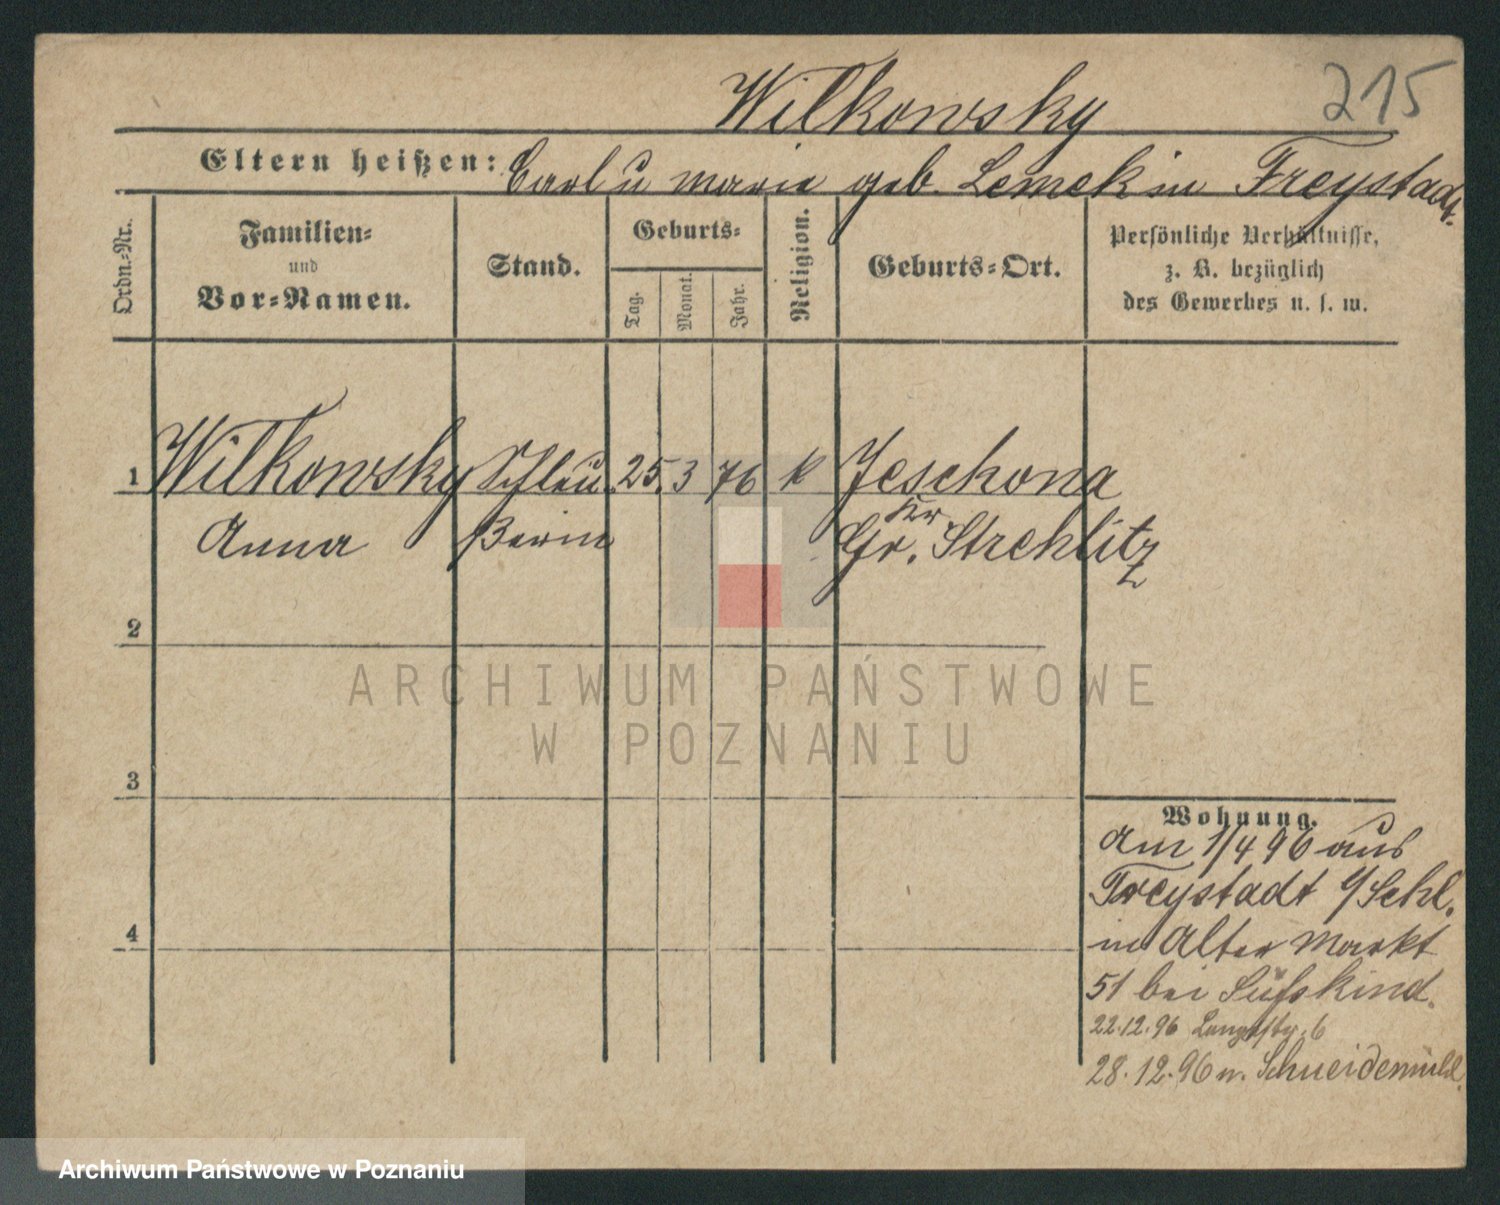 215
Wilkowsky
Eltern heißen: Carl u Marie geb. Lemek in Freystadt.
Ordn.-Nr.
Familien-
und
Vor-Namen.
Stand.
Geburts-
Tag.
Monat.
Jahr.
Religion.
Geburts-Ort.
Persönliche Verhältnisse,
z. B. bezüglich
des Gewerbes u. s. w.
1 Wilkowsky Schleu 25. 3 76 k Jeschona
Anna ßerin Kr. Gr. Strehlitz
2
3
4
Wohnung.
Am 1/4 96 aus
Freystadt i/Schl.
in Alter Markt
51 bei Süßkind.
22.12.96 Langestr. 6
28.12.96 n. Schneidemühl.
ARCHIWUM PAŃSTWOWE
W POZNANIU
Archiwum Państwowe w Poznaniu